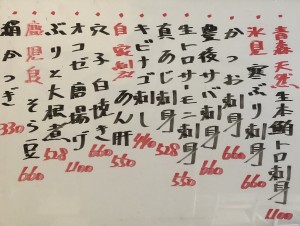 青森 天然 生本鮪トロ刺身 1100
氷見 寒ぶり刺身 660
かつお刺身 660
豊後サバ刺身 660
生トロサーモン刺身 550
真あじ刺身 528
キビナゴ刺し 440
自家製 あん肝 550
穴子白焼き 660
オコゼ唐揚げ 1100
ぶりと大根煮 528
鹿児島 そら豆 660
絹かつぎ 330